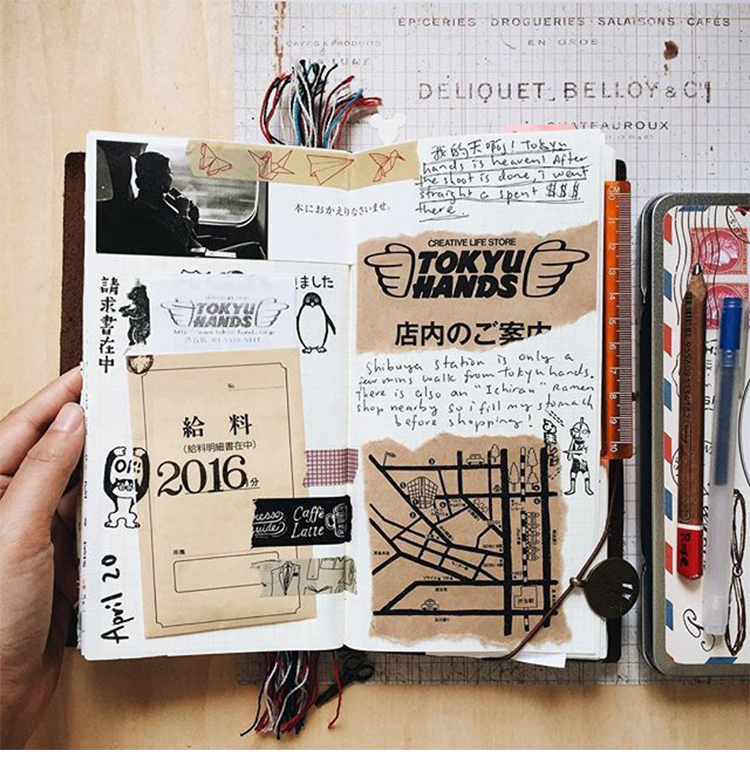 EPICERIES - DROGUERIES - SALAISONS - CAFÉS
EN GROS
DELIQUET, BELLOY & Cie
CHATEAUROUX
我的天啊! Tokyu
hands is heaven! After
the shoot is done, i went
straight & spent $$$
there.
本におかえりなさいませ。
CREATIVE LIFE STORE
TOKYU
HANDS
店内のご案内
Shibuya station is only a
few mins walk from tokyu hands.
There is also an "Ichiran" Ramen
shop nearby so i fill my stomach
before shopping!
請求書在中
ました
TOKYU
HANDS
No.
給料
(給料明細書在中)
2016
月分
Caffè
Latte
所属
April 20